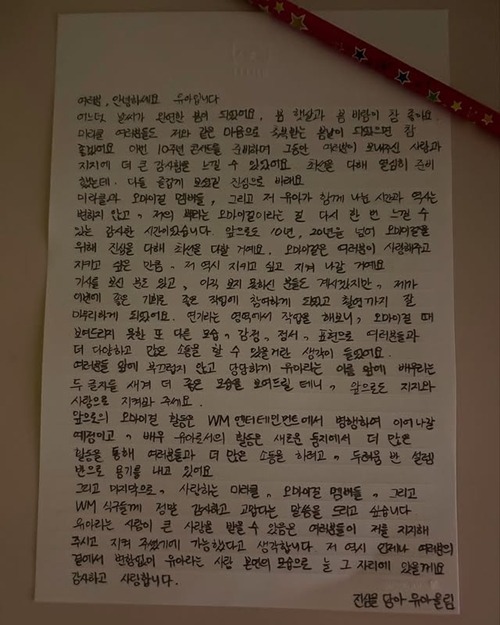 여러분, 안녕하세요 유아입니다
어느덧 날씨가 완연한 봄이 되었어요, 봄 햇살과 봄 바람이 참 좋아요.
미라클 여러분들도 저와 같은 마음으로 행복한 봄날이 되었으면 참
좋겠어요 이번 10주년 콘서트를 준비하며 그동안 여러분이 보내주신 사랑과
지지에 더 큰 감사함을 느낄 수 있었어요 최선을 다해 열심히 준비
했는데. 다들 즐겁게 보셨길 진심으로 바래요
미라클과 오마이걸 멤버들, 그리고 저 유아가 함께 나눈 시간과 역사는
변하지 않고 저의 뿌리는 오마이걸이라는 걸 다시 한 번 느낄 수
있는 감사한 시간이었습니다 앞으로도 10년, 20년을 넘어 오마이걸을
위해 진심을 다해 최선을 다할 거에요. 오마이걸은 여러분이 사랑해주고
지키고 싶은 만큼 저 역시 지키고 싶고 지켜 나갈 거에요
기사를 보신 분도 있고, 아직 보지 못하신 분들도 계시겠지만 제가
이번에 좋은 기회로 좋은 작업에 참여하게 되었고 촬영까지 잘
마무리하게 되었어요. 연기라는 영역에서 작업을 해보니, 오마이걸 때
보여드리지 못한 또 다른 모습, 감정, 정서, 표현으로 여러분들과
더 다양하고 많은 소통을 할 수 있을거란 생각이 들었어요.
여러분들 앞에 부끄럽지 않고 당당하게 유아라는 이름 앞에 배우라는
두 글자를 새겨 더 좋은 모습을 보여드릴 테니 앞으로도 지지와
사랑으로 지켜봐 주세요.
앞으로의 오마이걸 활동은 WM 엔터테인먼트에서 병행하여 이어 나갈
예정이고 배우 유아로서의 활동은 새로운 둥지에서 더 많은
활동을 통해 여러분들과 더 많은 소통을 하려고 두려움 반 설렘
반으로 용기를 내고 있어요
그리고 마지막으로, 사랑하는 미라클, 오마이걸 멤버들, 그리고
WM 식구들께 정말 감사하고 고맙다는 말씀을 드리고 싶습니다
유아라는 사람이 큰 사랑을 받을 수 있음은 여러분들이 저를 지지해
주시고 지켜 주셨기에 가능했다고 생각합니다. 저 역시 언제나 여러분의
곁에서 변함없이 유아라는 사람 본연의 모습으로 늘 그 자리에 있을게요
감사하고 사랑합니다.
진심을 담아 유아 올림